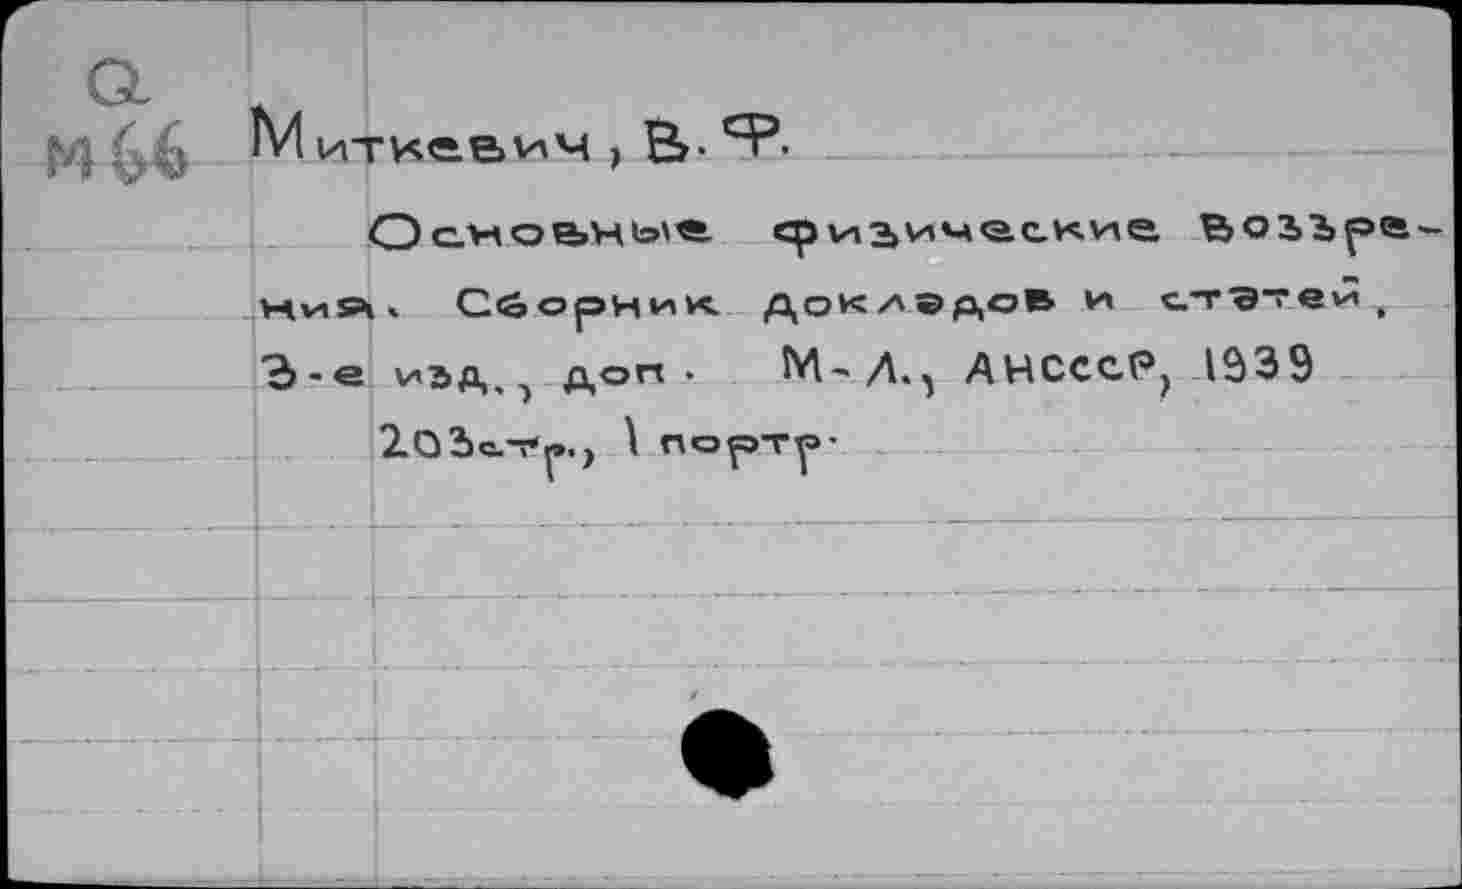 a
М66 Миткевич, В.Ф.
Основные физические воззре-
ния. Сборник докладов и статей.
3-е изд., доп. М-Л., АНСССР, 1939
203стр., 1 портр.